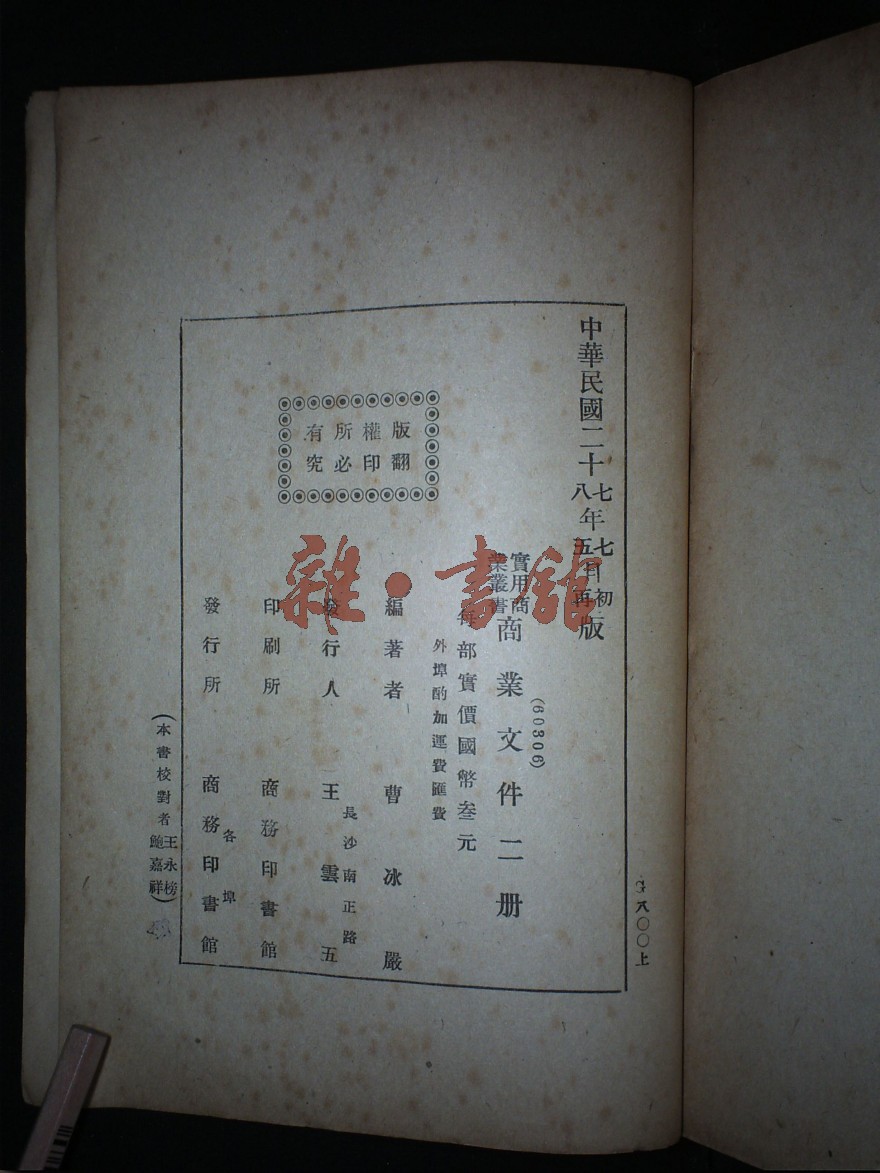 中華民國二十七年七月初版
八年五月再版
G八〇〇上
實用商業叢書
商業文件二册
(60306)
每部實價國幣叁元
外埠酌加運費匯費
編著者 曹冰嚴
發行人 王雲五
長沙南正路
印刷所 商務印書館
發行所 商務印書館
各埠
版權所有
翻印必究
(本書校對者王永榜鮑嘉祥)
雜·書舘